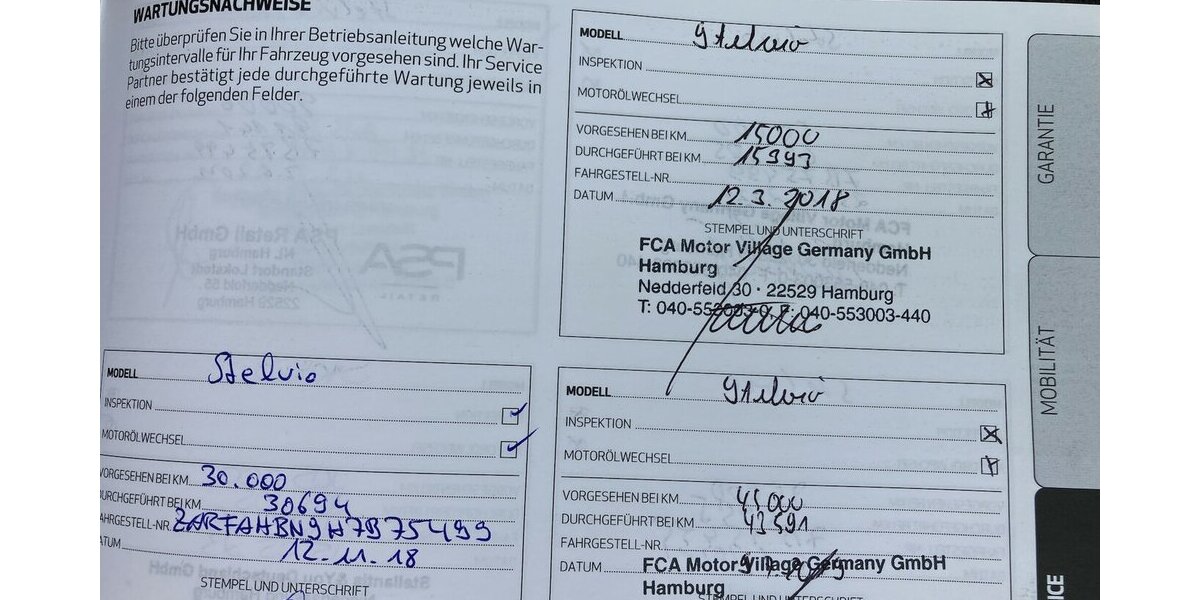 WARTUNGSNACHWEISE
Bitte überprüfen Sie in Ihrer Betriebsanleitung welche War-
tungsintervalle für Ihr Fahrzeug vorgesehen sind. Ihr Service
Partner bestätigt jede durchgeführte Wartung jeweils in
einem der folgenden Felder.
MODELL Stelvio
INSPEKTION
MOTORÖLWECHSEL
VORGESEHEN BEI KM 15000
DURCHGEFÜHRT BEI KM 15993
FAHRGESTELL-NR.
DATUM 12.3.2018
STEMPEL UND UNTERSCHRIFT
FCA Motor Village Germany GmbH
Hamburg
Nedderfeld 30 · 22529 Hamburg
T: 040-553003-0, F: 040-553003-440
MODELL Stelvio
INSPEKTION
MOTORÖLWECHSEL
VORGESEHEN BEI KM 30.000
DURCHGEFÜHRT BEI KM 30694
FAHRGESTELL-NR. ZARFAHBN9H7B75499
DATUM 12.11.18
STEMPEL UND UNTERSCHRIFT
MODELL Stelvio
INSPEKTION
MOTORÖLWECHSEL
VORGESEHEN BEI KM 45000
DURCHGEFÜHRT BEI KM 43591
FAHRGESTELL-NR.
DATUM
FCA Motor Village Germany GmbH
Hamburg
STEMPEL UND UNTERSCHRIFT
GARANTIE
MOBILITÄT